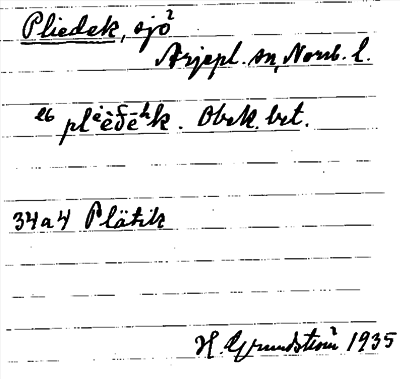 Pliedek, sjö
Arjepl. sn, Norrb. l.
Obek. bet.
34a4 Plätik
H. Grundström 1935